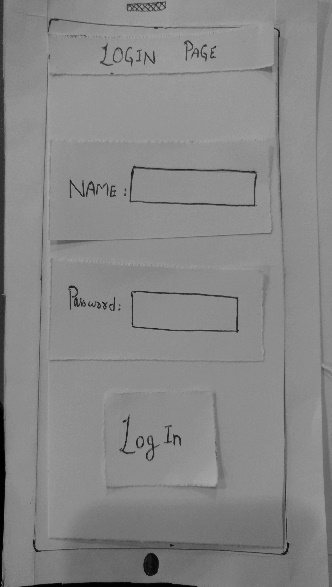 LOGIN PAGE
NAME:
Password:
Log In